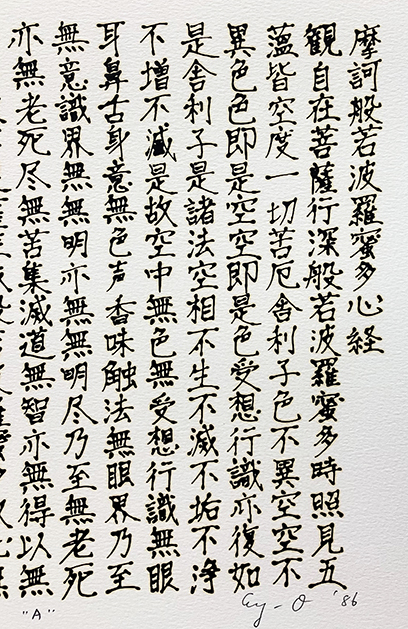 摩訶般若波羅蜜多心経
観自在菩薩行深般若波羅蜜多時照見五
薀皆空度一切苦厄舎利子色不異空空不
異色色即是空空即是色受想行識亦復如
是舎利子是諸法空相不生不滅不垢不浄
不増不減是故空中無色無受想行識無眼
耳鼻舌身意無色声香味触法無眼界乃至
無意識界無無明亦無無明尽乃至無老死
亦無老死尽無苦集滅道無智亦無得以無
"A"
Ay-O '86